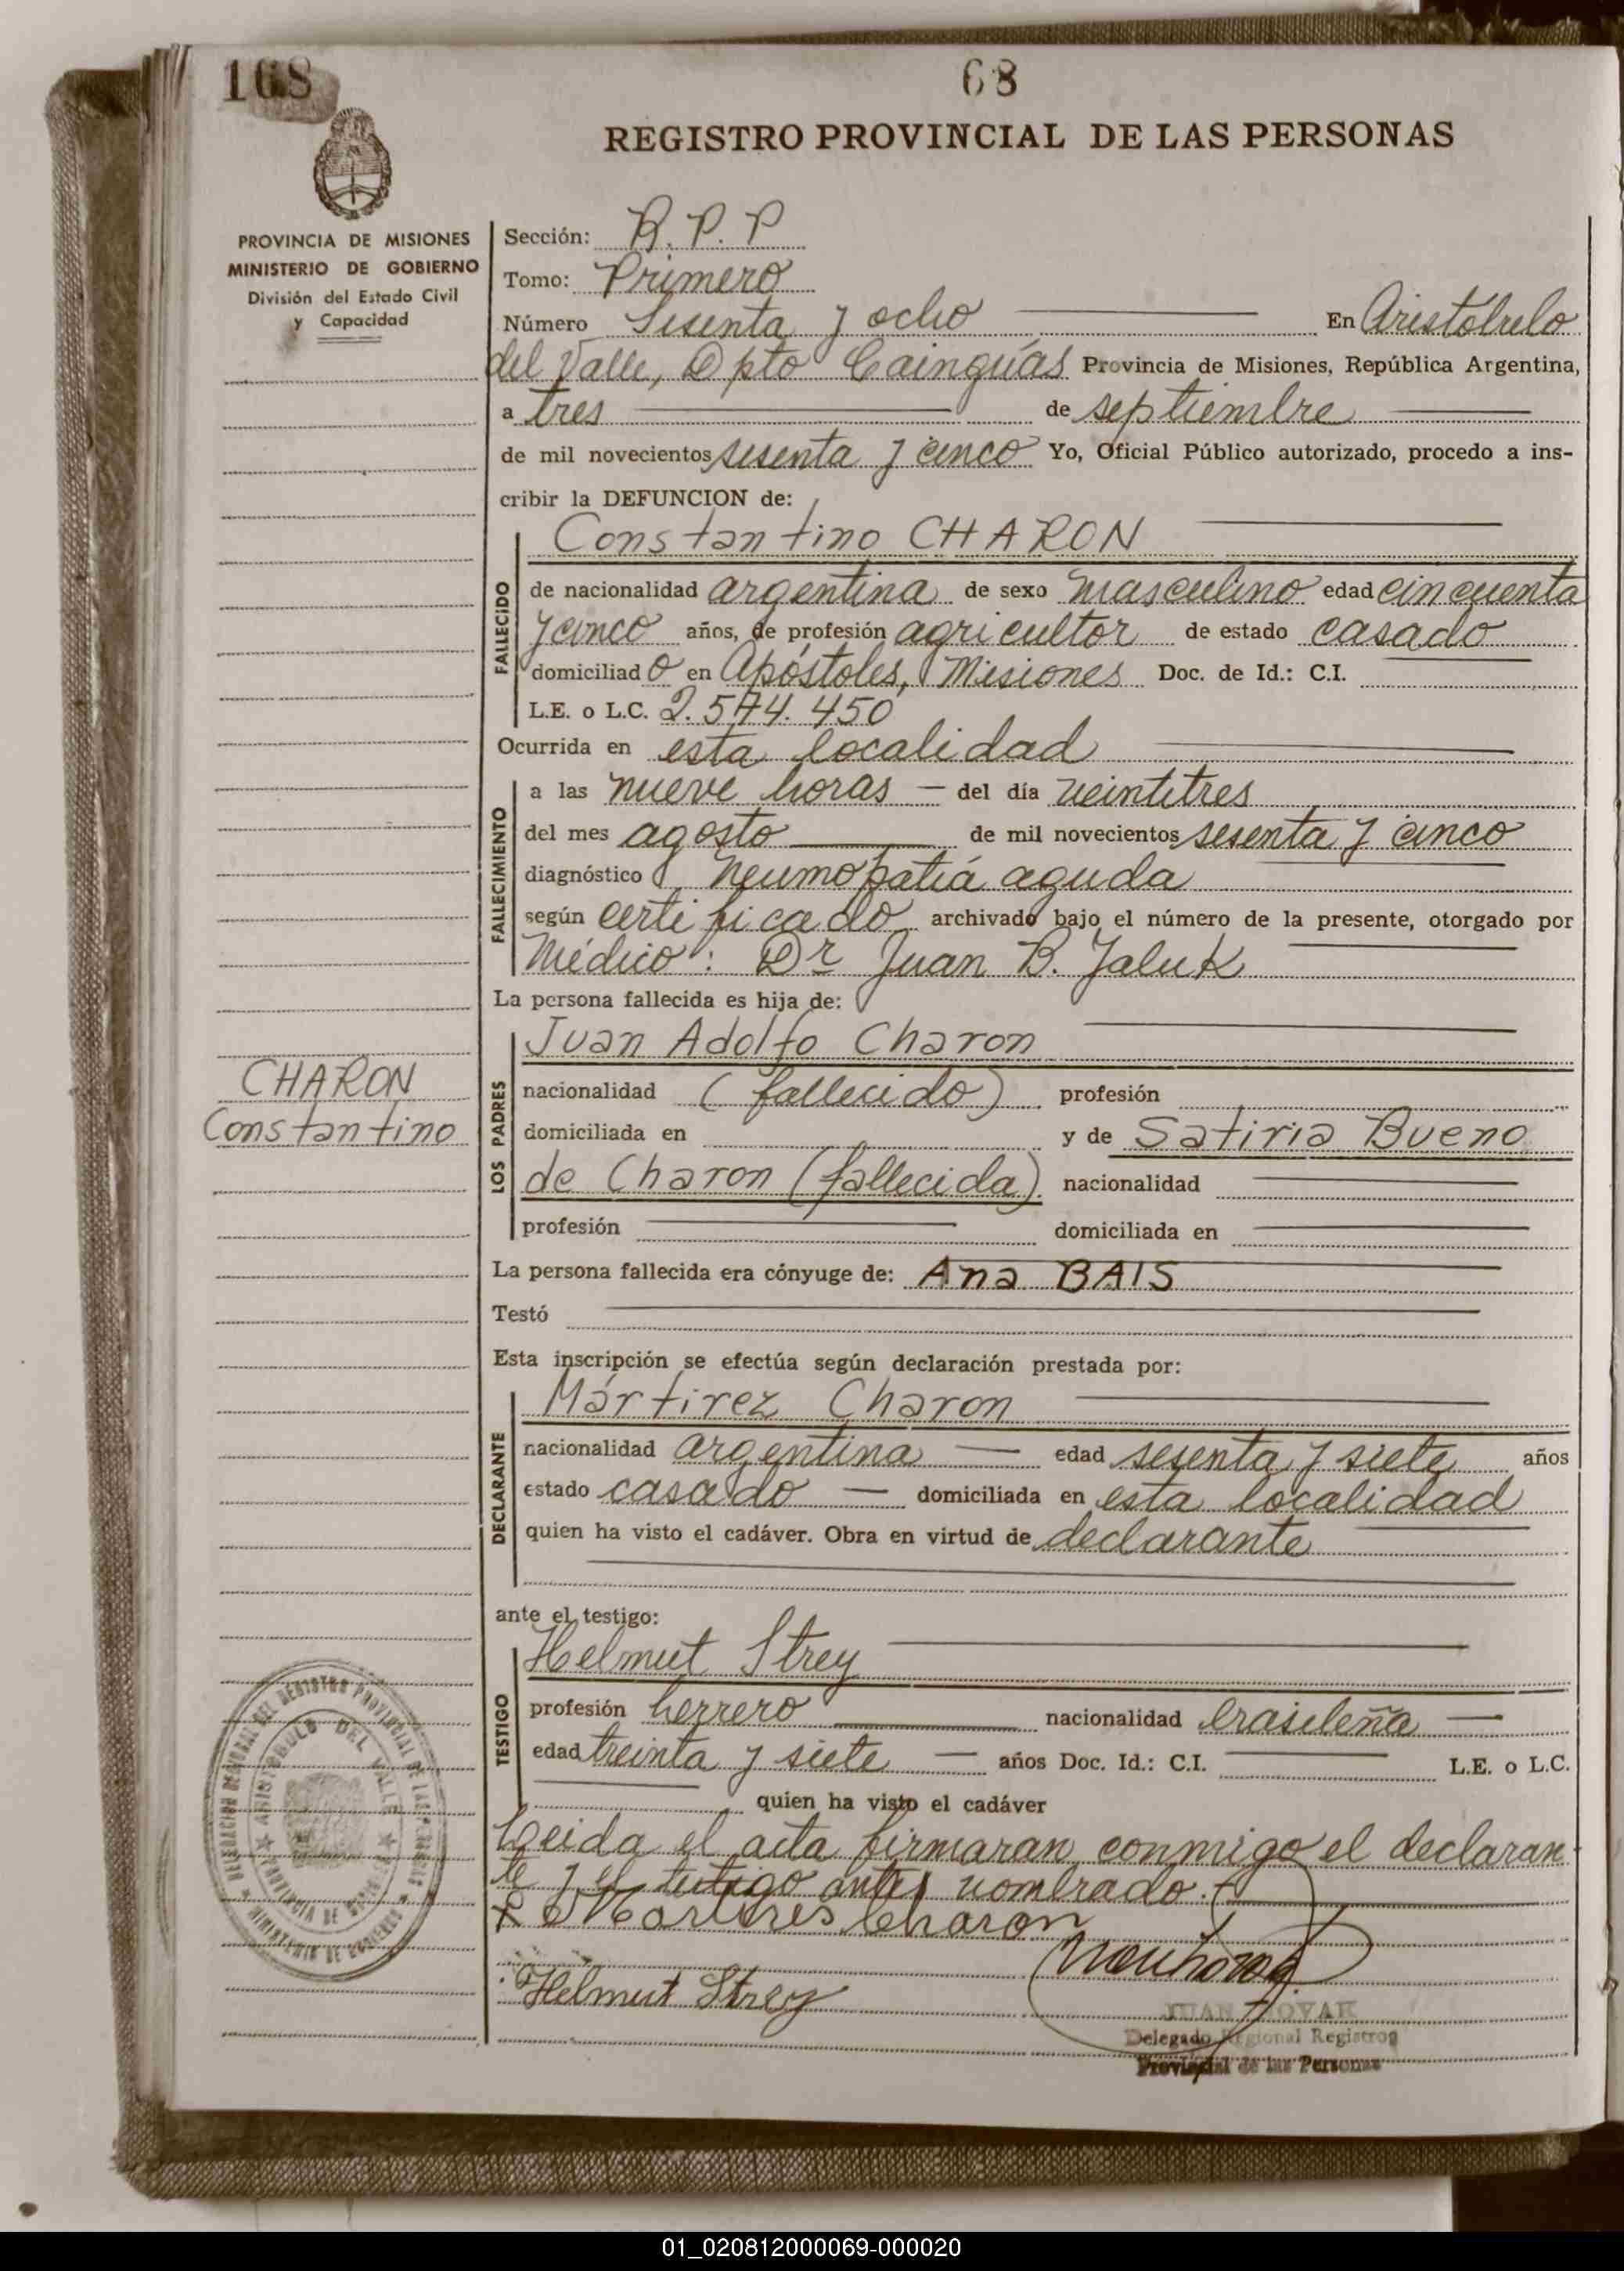 168
68
REGISTRO PROVINCIAL DE LAS PERSONAS
PROVINCIA DE MISIONES
MINISTERIO DE GOBIERNO
División del Estado Civil
y Capacidad
Sección: R. P. P
Tomo: Primero
Número Sesenta y ocho En Aristóbulo
del Valle, Dpto Cainguás Provincia de Misiones, República Argentina,
a tres de septiembre
de mil novecientos sesenta y cinco Yo, Oficial Público autorizado, procedo a ins-
cribir la DEFUNCION de:
Constantino CHARON
FALLECIDO
de nacionalidad argentina de sexo masculino edad cincuenta
y cinco años, de profesión agricultor de estado casado
domiciliado en Apóstoles, Misiones Doc. de Id.: C.I.
L.E. o L.C. 2.574.450
Ocurrida en esta localidad
FALLECIMIENTO
a las nueve horas — del día veintitres
del mes agosto de mil novecientos sesenta y cinco
diagnóstico Neumopatiá aguda
según certificado archivado bajo el número de la presente, otorgado por
Médico: Dr Juan B. Jaluk
La persona fallecida es hija de:
Juan Adolfo Charon
LOS PADRES
nacionalidad (fallecido) profesión
domiciliada en y de Satiria Bueno
de Charon (fallecida) nacionalidad
profesión domiciliada en
CHARON
Constantino
La persona fallecida era cónyuge de: Ana BAIS
Testó
Esta inscripción se efectúa según declaración prestada por:
Mártirez Charon
DECLARANTE
nacionalidad argentina — edad sesenta y siete años
estado casado — domiciliada en esta localidad
quien ha visto el cadáver. Obra en virtud de declarante
ante el testigo:
Helmut Strey
TESTIGO
profesión herrero nacionalidad brasileña —
edad treinta y siete — años Doc. Id.: C.I. L.E. o L.C.
quien ha visto el cadáver
Leida el acta firmaran conmigo el declaran-
te y el testigo antes nombrado.-
x Martires Charon
Helmut Strey
JUAN NOVAK
Delegado Regional Registros
Provincial de las Personas
DELEGACION REGIONAL DEL REGISTRO PROVINCIAL DE LAS PERSONAS
ARISTOBULO DEL VALLE
PROVINCIA DE MISIONES
MINISTERIO DE GOBIERNO
01_020812000069-000020